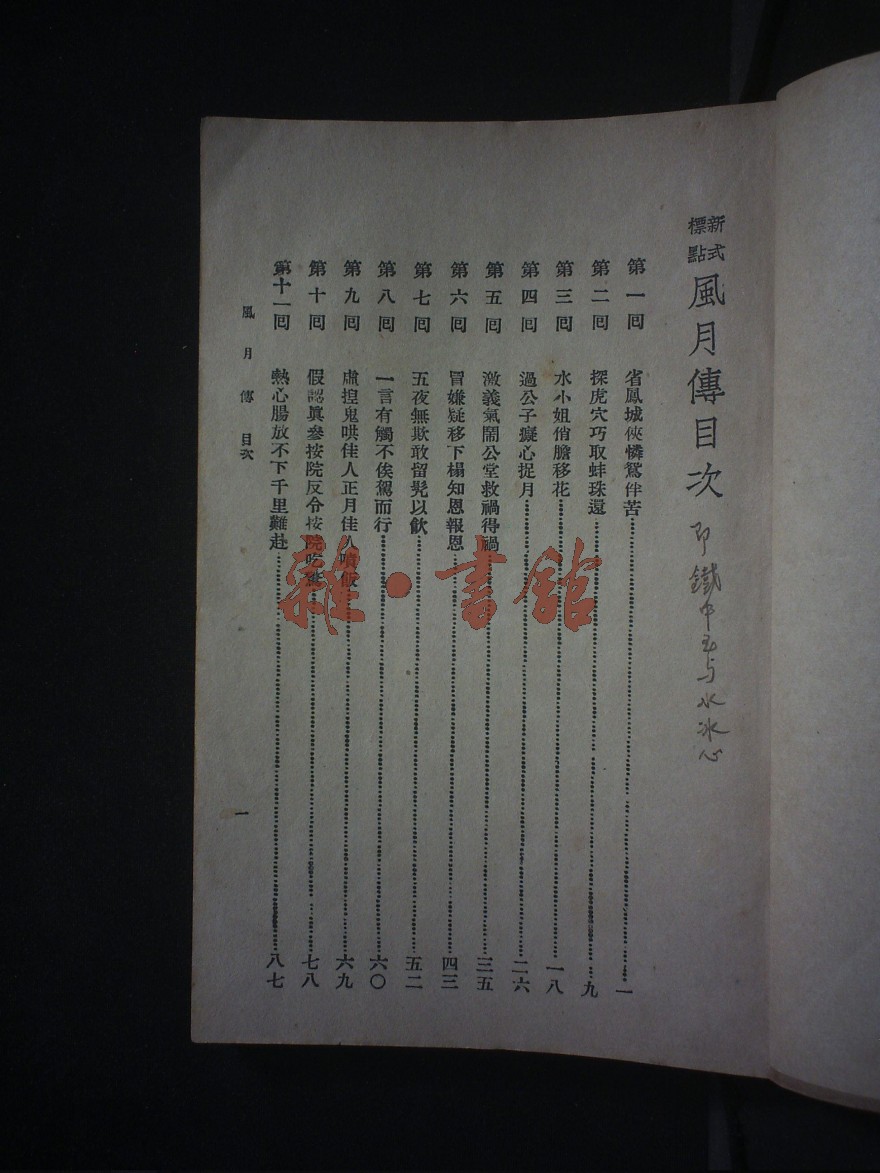 新式標點 風月傳目次
即鐵中玉与水冰心
第一囘 省鳳城俠憐鴛伴苦 一
第二囘 探虎穴巧取蚌珠還 九
第三囘 水小姐俏膽移花 一八
第四囘 過公子癡心捉月 二六
第五囘 激義氣鬧公堂救禍得禍 三五
第六囘 冒嫌疑移下榻知恩報恩 四三
第七囘 五夜無欺敢留髡以飲 五二
第八囘 一言有觸不俟駕而行 六〇
第九囘 虛揑鬼哄佳人正月佳人噴飯 六九
第十囘 假認眞參按院反令按院吃 七八
第十一囘 熱心腸放不下千里難赴 八七
風月傳 目次
一
雜·書館